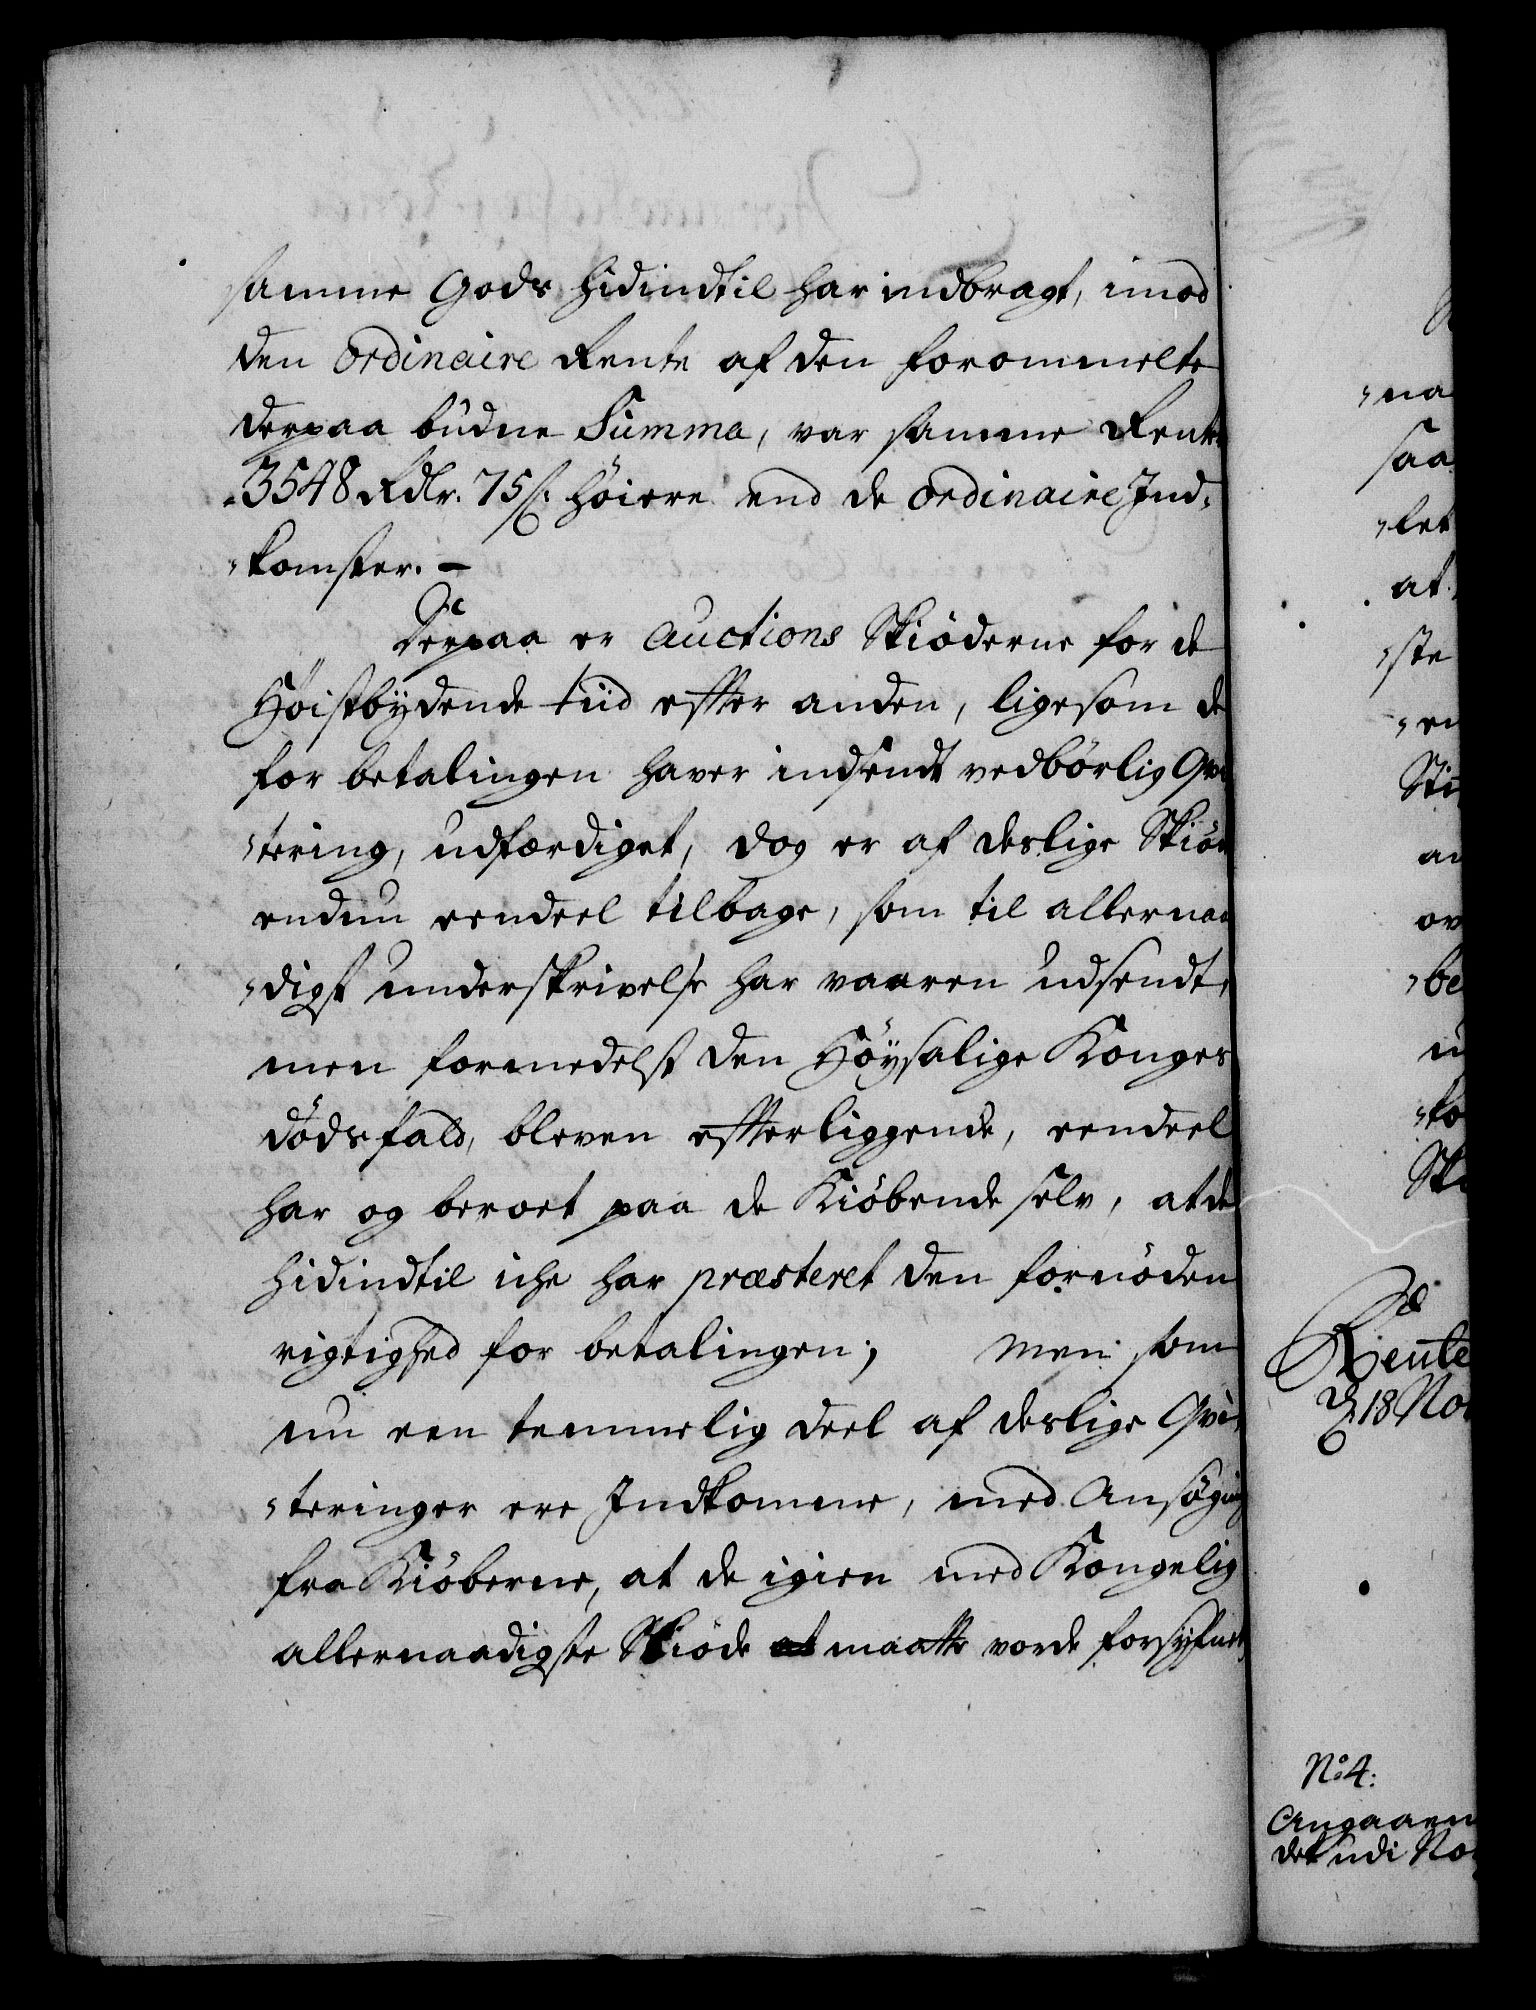 samme Gods hidindtil har indbragt, imod
den ordinaire Rente af den forommelte
derpaa budne Summa, var samme Rente
3548 Rdlr. 75 ß: höiere end de ordinaire Ind-
-komster. -
Derpaa er Auctions Skiöderne for de
Höistbydende tiid effter anden, ligesom de
for betalingen haver indsendt vedbörlig Qvi
-tering, udfærdiget, dog er af deslige Skiöd
endnu eendeel tilbage, som til allernaa
-digst underskrivelse har vaaren udsendt,
men formedelst den Höysalige Konges
dödsfald, bleven effterliggende, eendeel
har og beroet paa de Kiöbende selv, at de
hidindtil iche har præsteret den fornöden
rigtighed for betalingen; men som
nu een temmelig deel af deslige Qvi-
-teringer ere Indkomne, med Ansögning
fra Kiöberne, at de igien med Kongelig
allernaadigste Skiöde at maatte vorde forsyfnet,
-na
saa
-let
at
-ste
-en
an
ov
-be
-ko
Rente
d 18 No
No 4:
Angaaen
det udi No